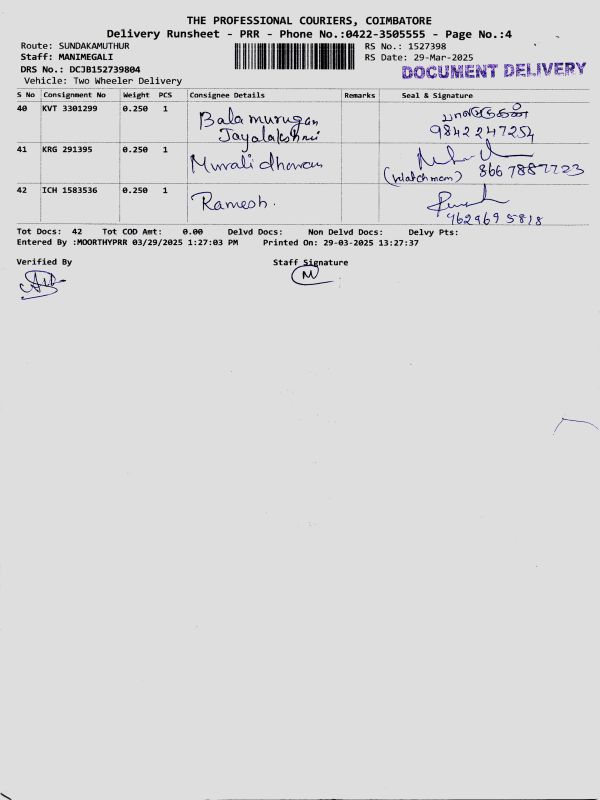 THE PROFESSIONAL COURIERS, COIMBATORE
Delivery Runsheet - PRR - Phone No.:0422-3505555 - Page No.:4
Route: SUNDAKAMUTHUR
Staff: MANIMEGALI
DRS No.: DCJB152739804
Vehicle: Two Wheeler Delivery
RS No.: 1527398
RS Date: 29-Mar-2025
DOCUMENT DELIVERY
S No Consignment No Weight PCS Consignee Details Remarks Seal & Signature
40 KVT 3301299 0.250 1 Balamurugan
Jayalakshmi 9842247254
41 KRG 291395 0.250 1 Muralidharan
(watchman) 8667887723
42 ICH 1583536 0.250 1 Ramesh.
9629695818
Tot Docs: 42 Tot COD Amt: 0.00 Delvd Docs: Non Delvd Docs: Delvy Pts:
Entered By :MOORTHYPRR 03/29/2025 1:27:03 PM Printed On: 29-03-2025 13:27:37
Verified By Staff Signature
M